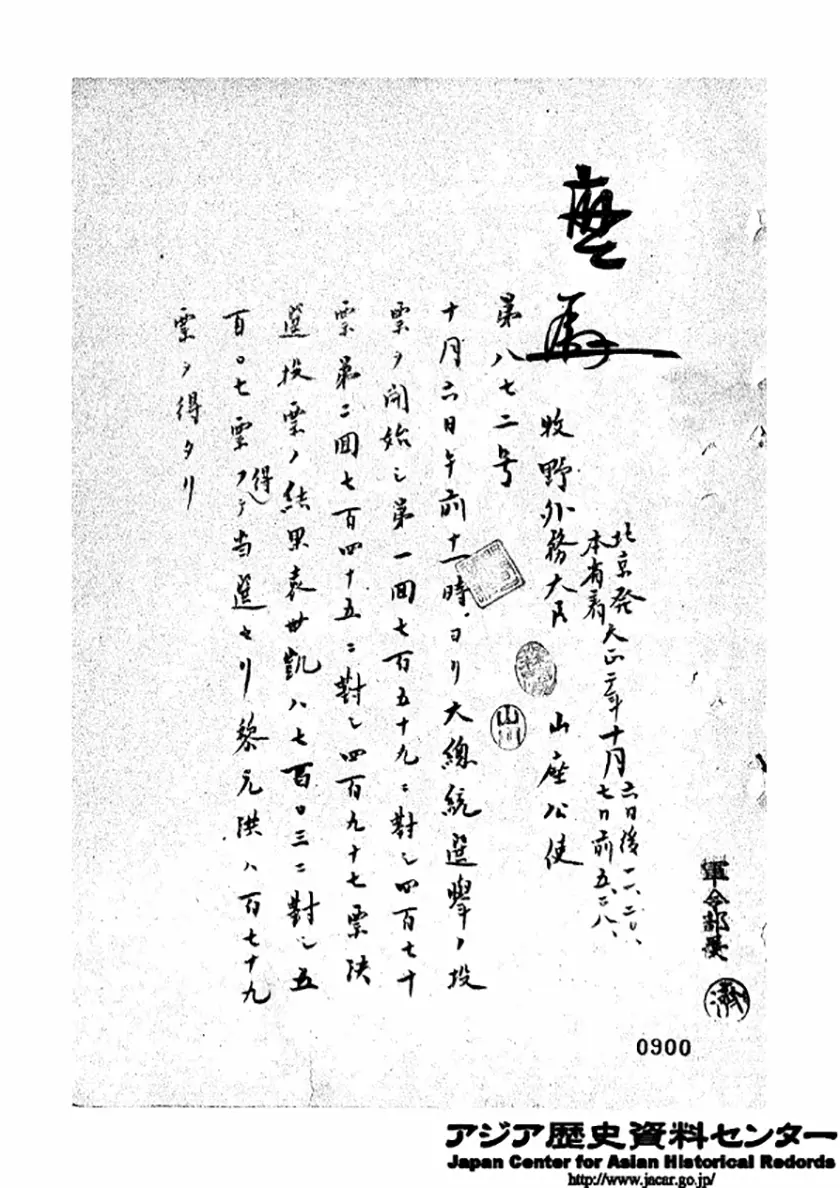 北京発 大正二年十月 六日後一一、二〇、
本省着 七日前五、二八、
牧野外務大臣 山座公使
第八七二号
十月六日午前十一時ヨリ大總統選擧ノ投
票ヲ開始シ第一回七百五十九ニ對シ四百七十
票第二回七百四十五ニ對シ四百九十七票決
選投票ノ結果袁世凱ハ七百〇三ニ對シ五
百〇七票ヲ得テ当選セリ黎元洪ハ百七十九
票ヲ得タリ
軍令部長
山川
0900
アジア歴史資料センター
Japan Center for Asian Historical Records
http://www.jacar.go.jp/